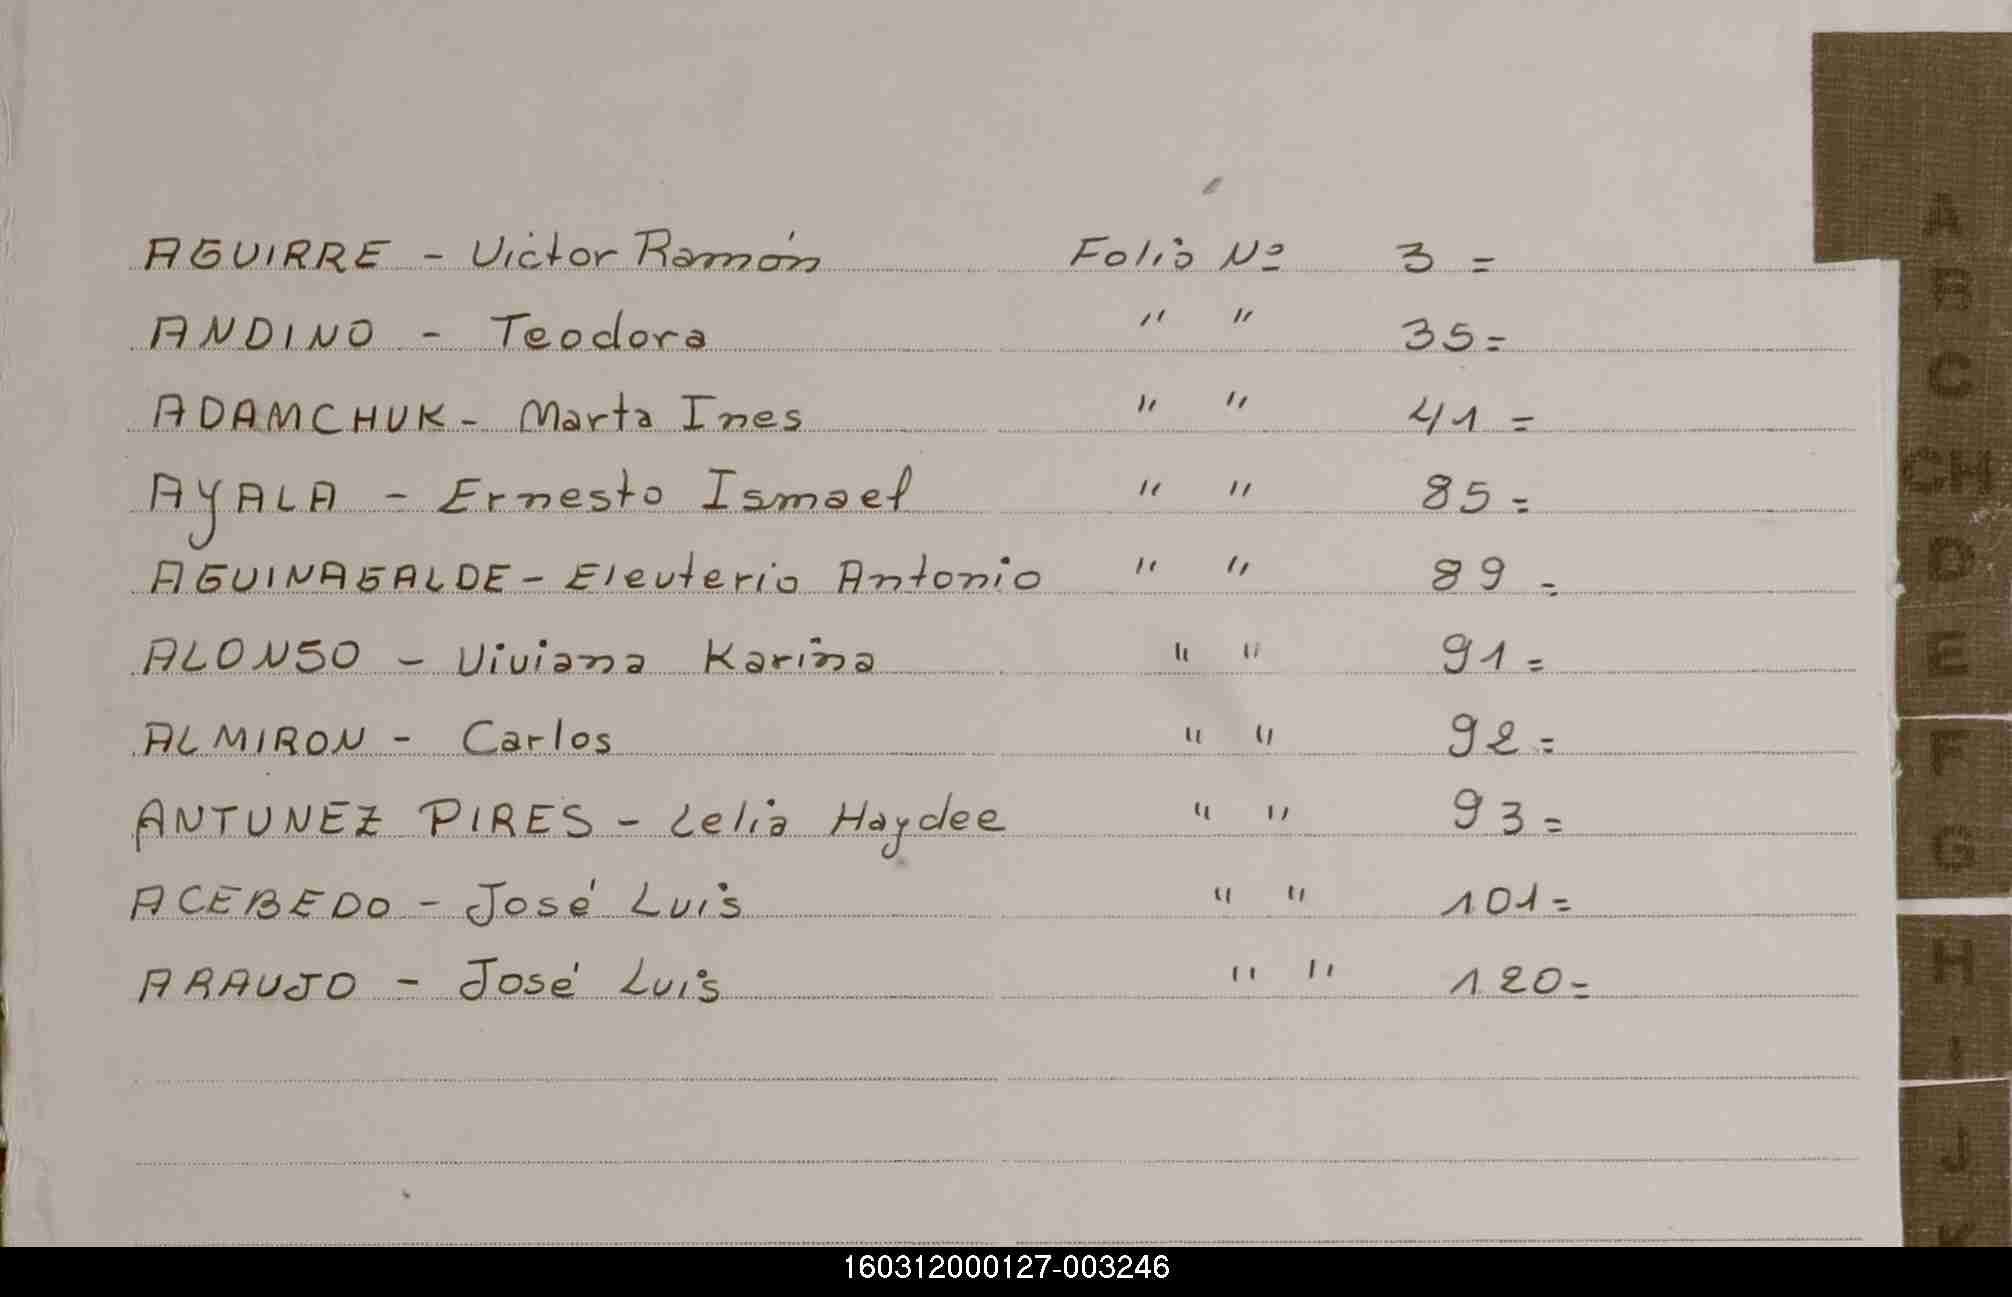 AGUIRRE - Victor Ramón Folio Nº 3 =
ANDINO - Teodora " " 35 =
ADAMCHUK - Marta Ines " " 41 =
AYALA - Ernesto Ismael " " 85 =
AGUINAGALDE - Eleuterio Antonio " " 89 =
ALONSO - Viviana Karina " " 91 =
ALMIRON - Carlos " " 92 =
ANTUNEZ PIRES - Lelia Haydee " " 93 =
ACEBEDO - José Luis " " 101 =
ARAUJO - José Luis " " 120 =
A
B
C
CH
D
E
F
G
H
I
J
K
160312000127-003246